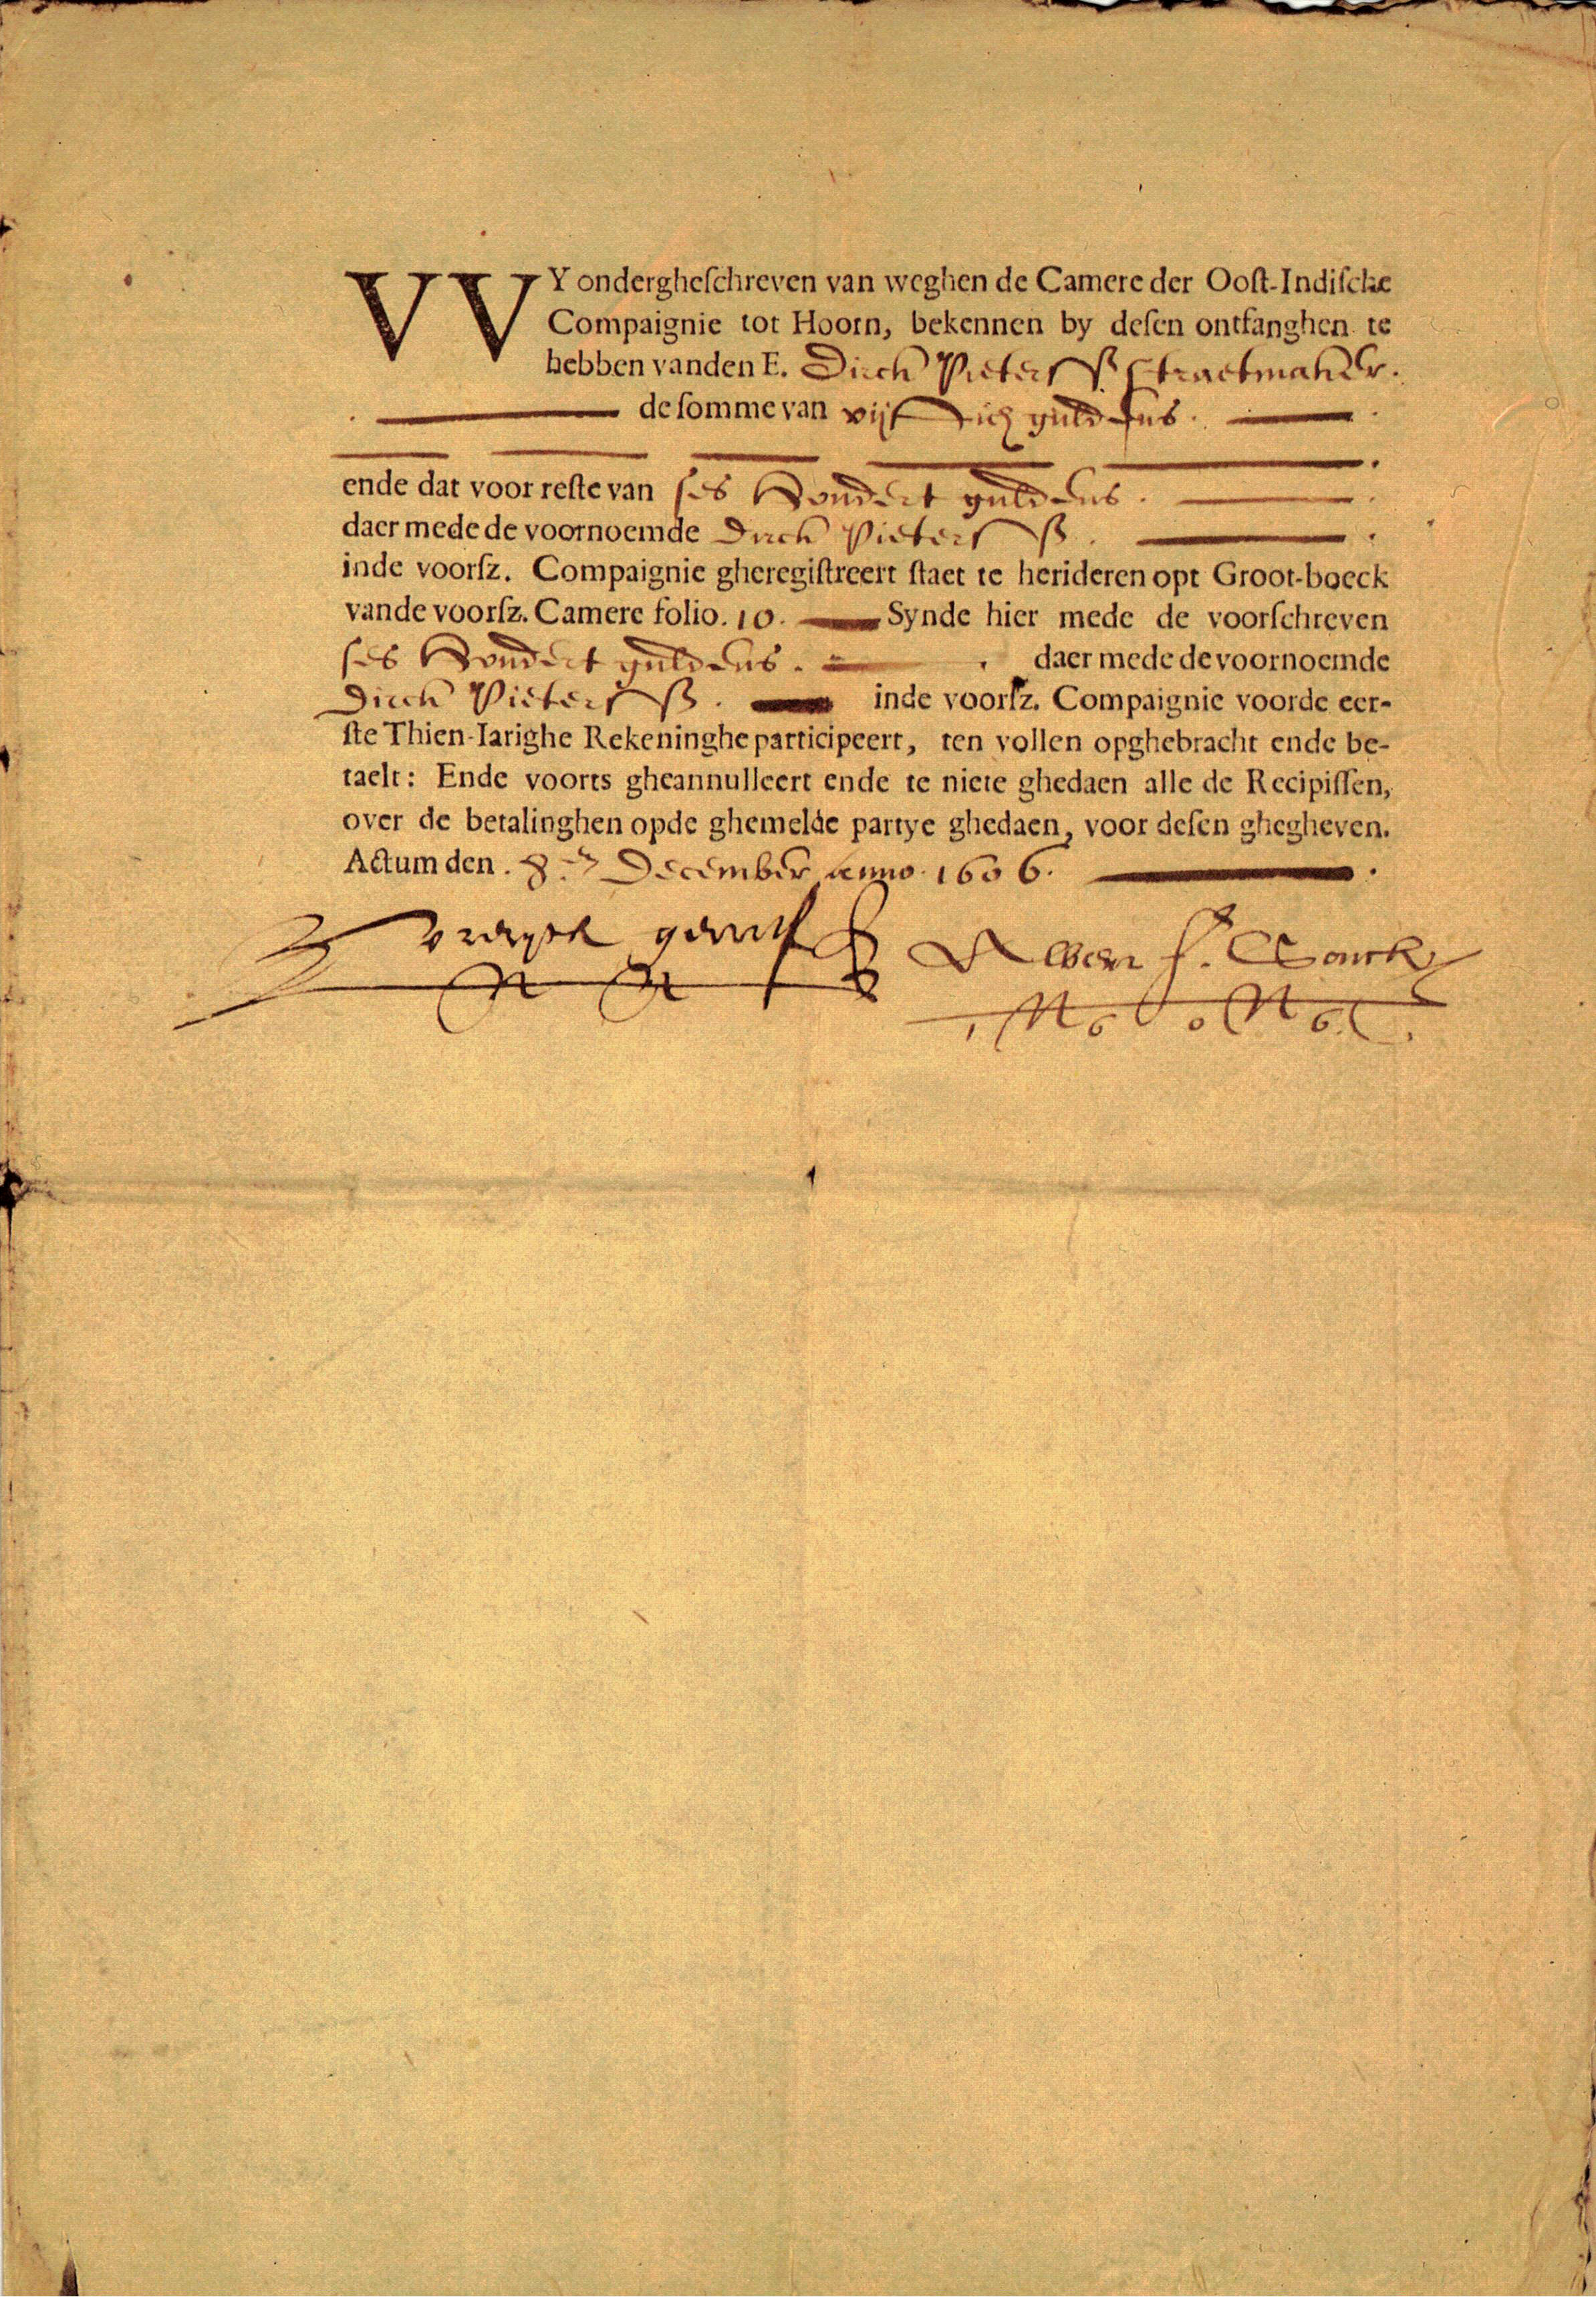 VVY ondergheſchreven van weghen de Camere der Ooſt-Indiſche
Compaignie tot Hoorn, bekennen by deſen ontfanghen te
hebben vanden E. Dirck Pieterſß Straetmaker.
de ſomme van vijftich guldens.
ende dat voor reſte van ſes Hondert guldens.
daer mede de voornoemde Dirck Pieterſß.
inde voorſz. Compaignie gheregiſtreert ſtaet te herideren opt Groot-boeck
vande voorſz. Camere folio. 10. Synde hier mede de voorſchreven
ſes Hondert guldens. daer mede de voornoemde
Dirck Pieterſß. inde voorſz. Compaignie voorde eer-
ſte Thien-Iarighe Rekeninghe participeert, ten vollen opghebracht ende be-
taelt: Ende voorts gheannulleert ende te niete ghedaen alle de Recipiſſen,
over de betalinghen opde ghemelde partye ghedaen, voor deſen ghegheven.
Actum den. 8.en December anno. 1606.